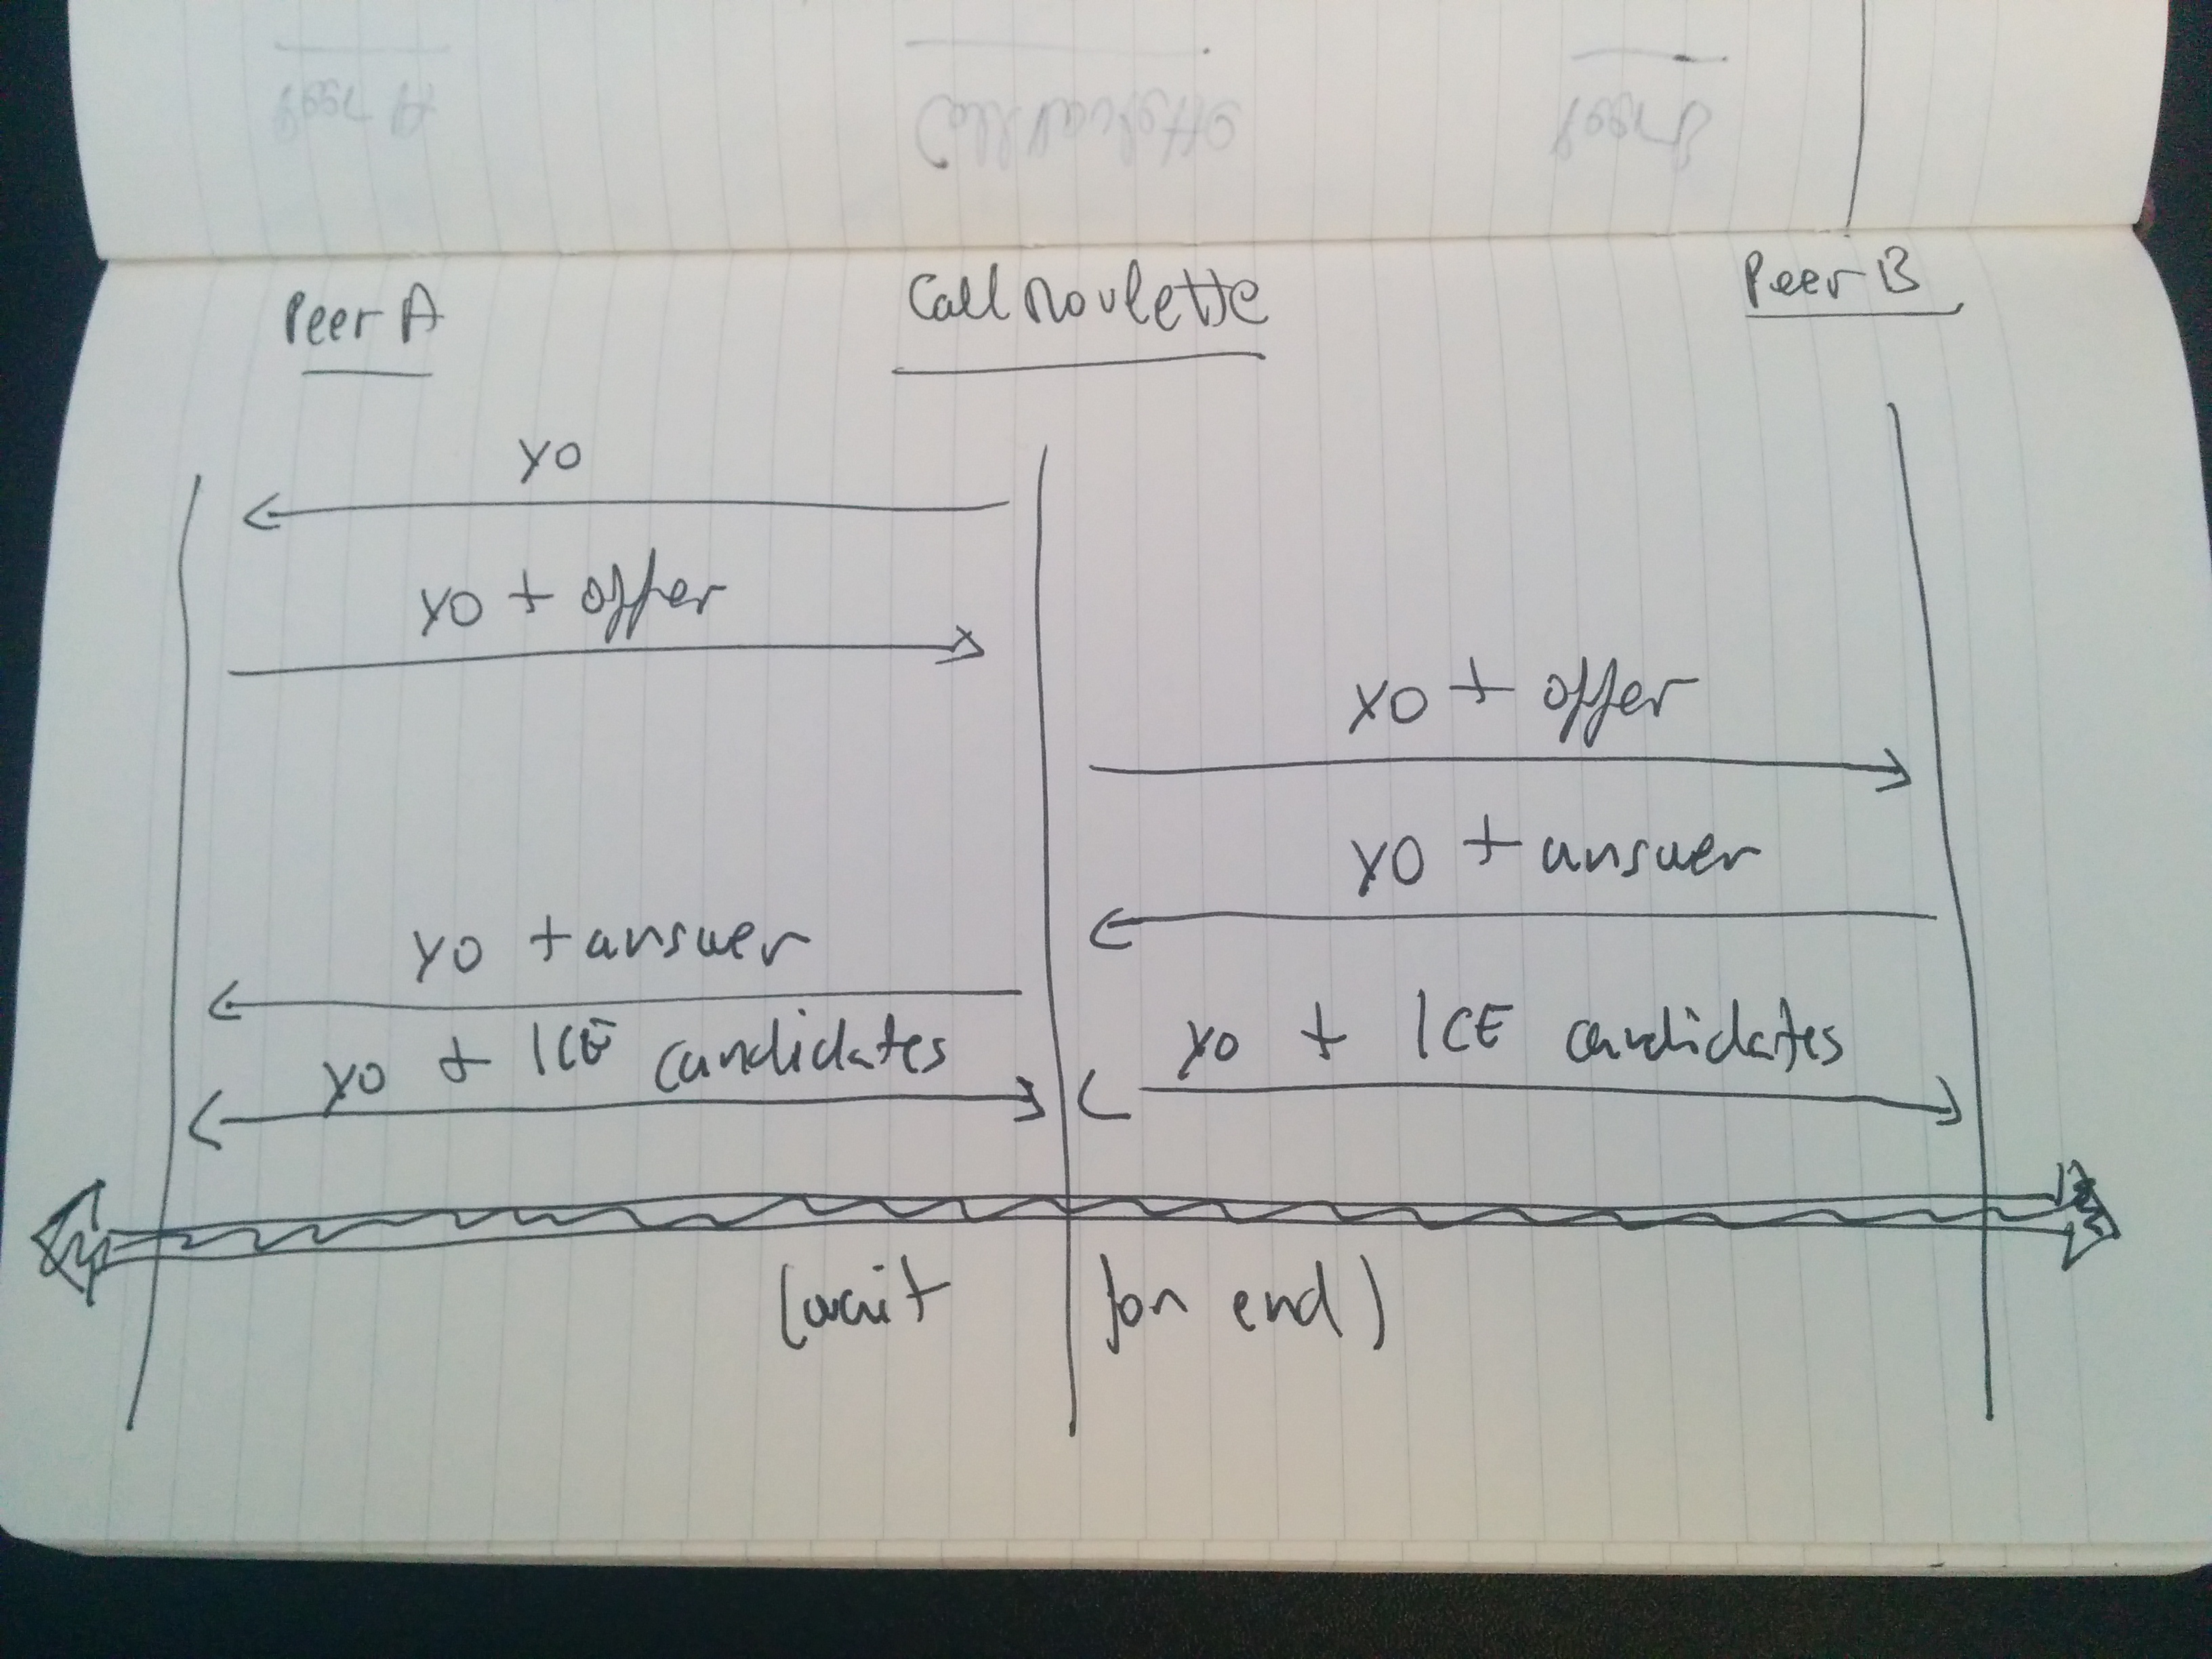 Peer A Call Roulette Peer B
yo
yo + offer
yo + offer
yo + answer
yo + answer
yo + ICE candidates yo + ICE candidates
(wait for end)